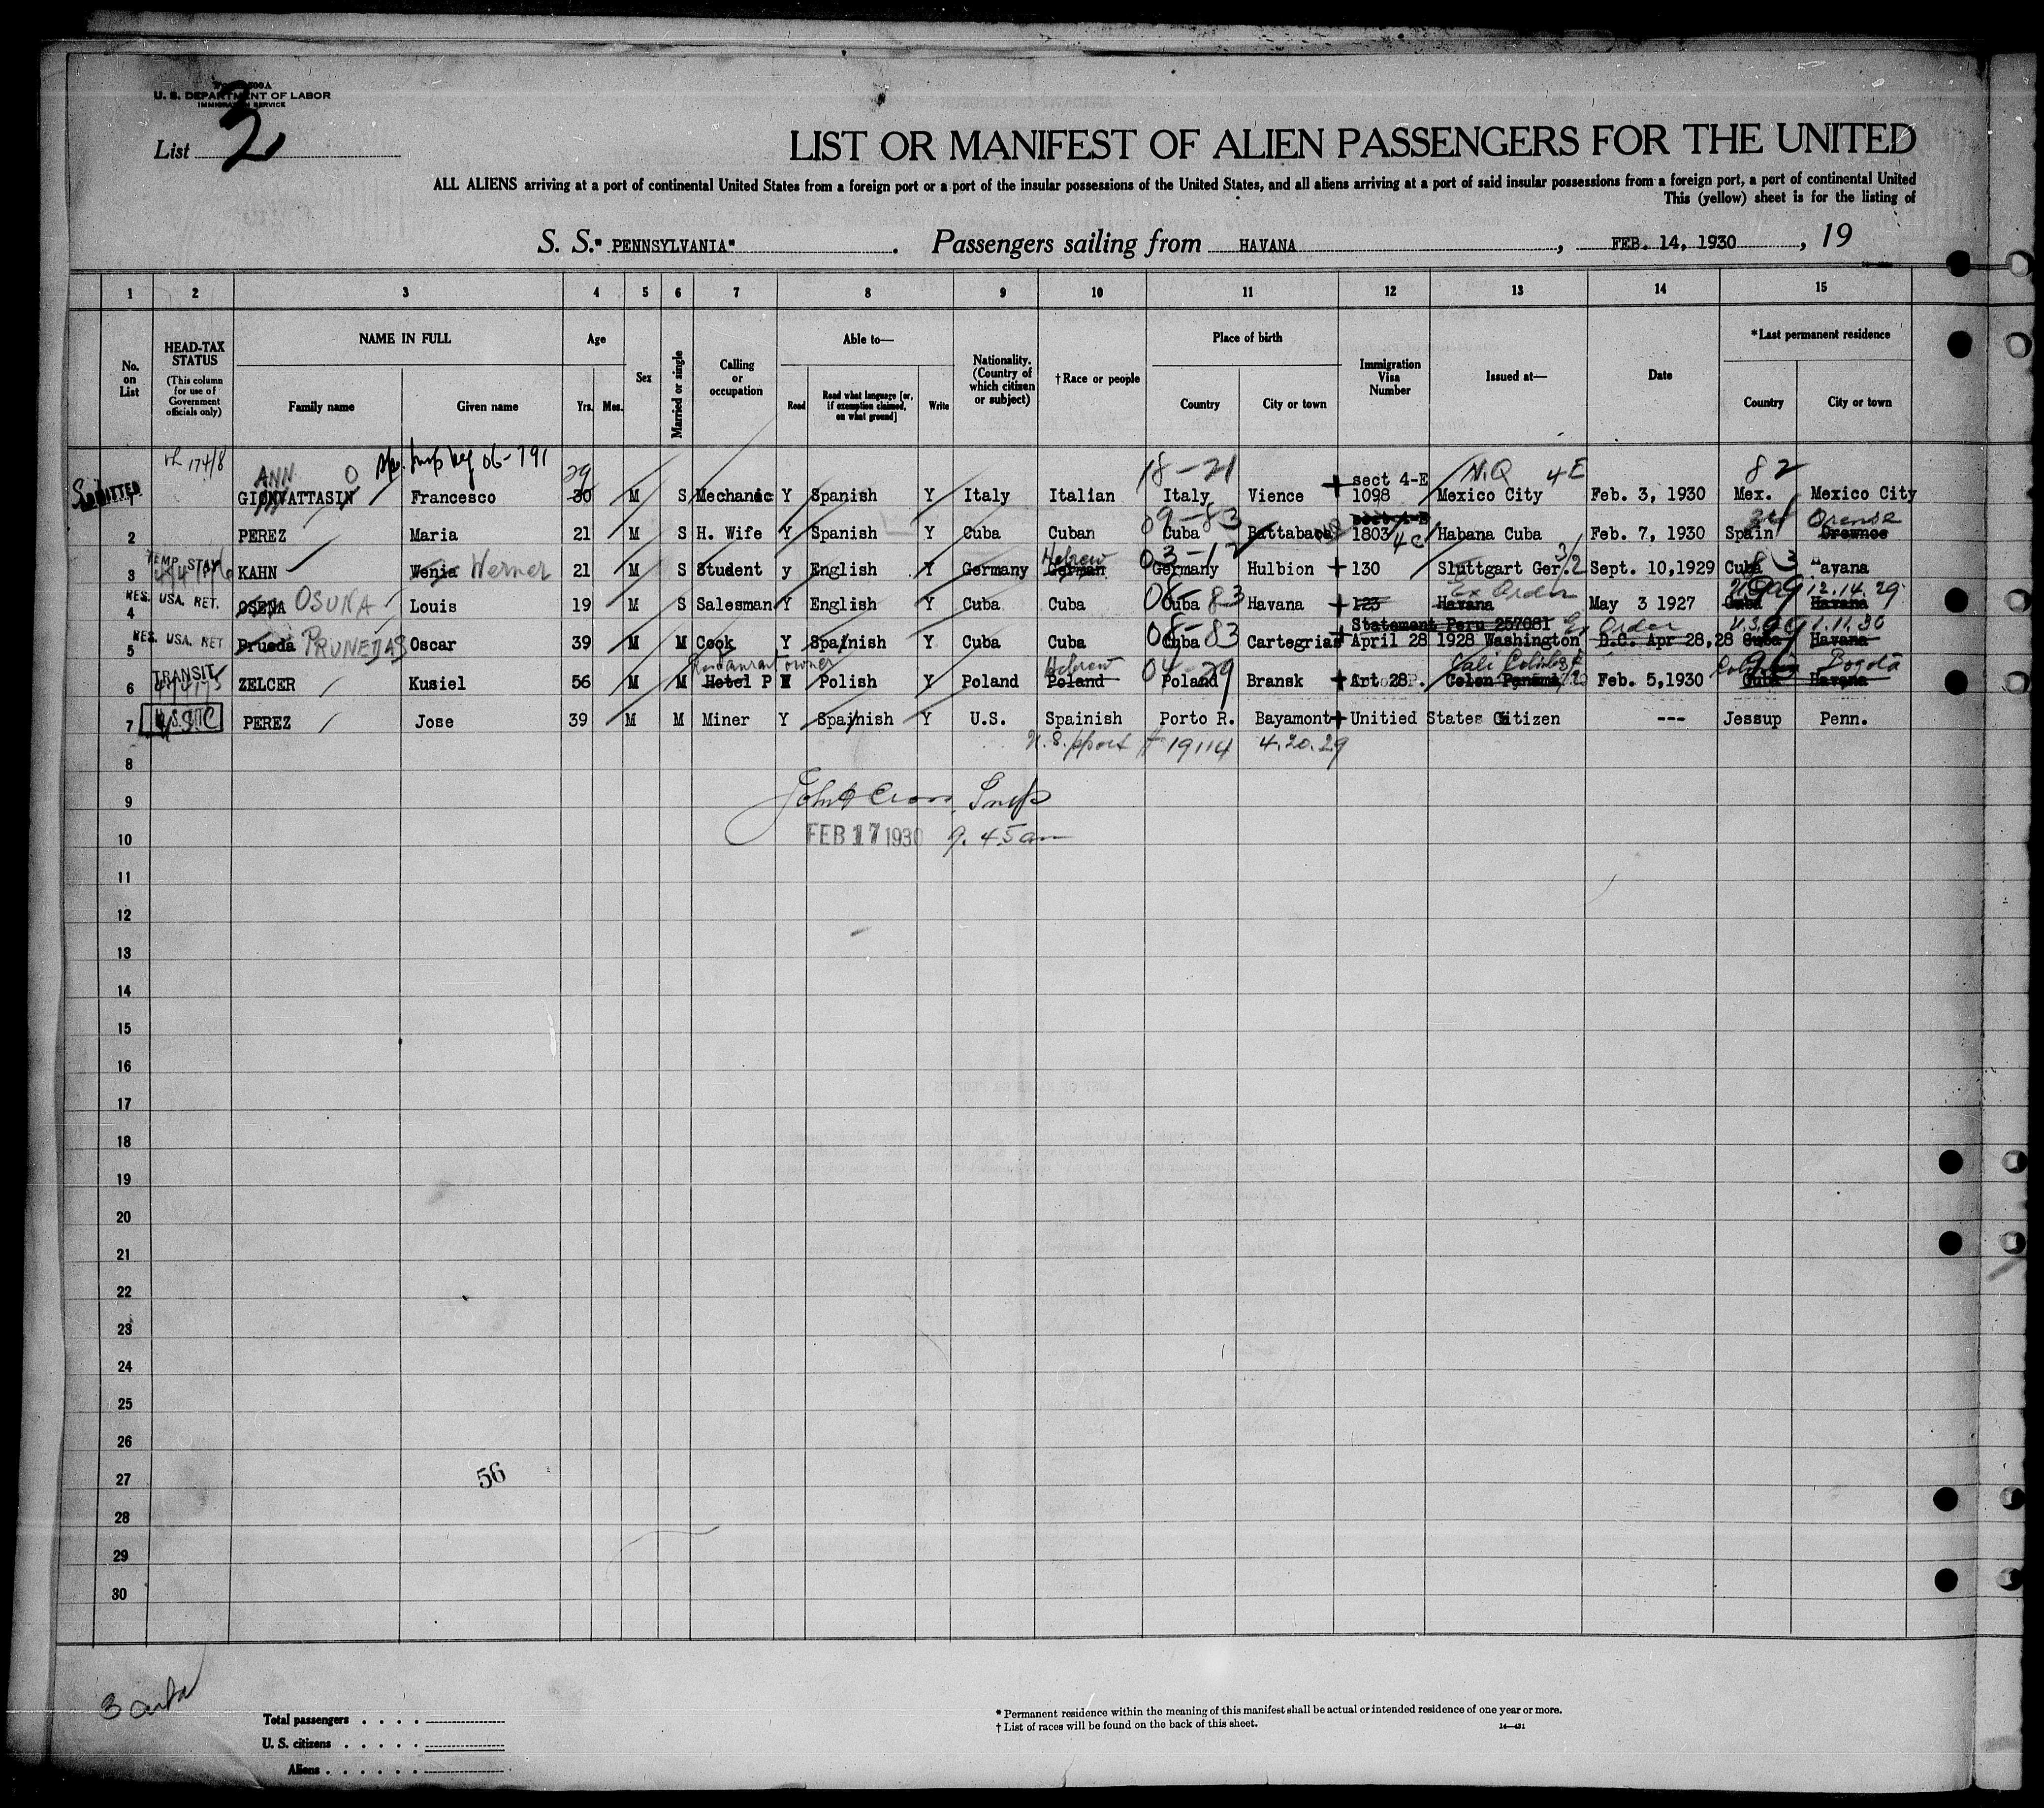 U. S. DEPARTMENT OF LABOR
IMMIGRATION SERVICE
List 2
LIST OR MANIFEST OF ALIEN PASSENGERS FOR THE UNITED
ALL ALIENS arriving at a port of continental United States from a foreign port or a port of the insular possessions of the United States, and all aliens arriving at a port of said insular possessions from a foreign port, a port of continental United
This (yellow) sheet is for the listing of
S. S. " PENNSYLVANIA" . Passengers sailing from HAVANA , FEB. 14, 1930 , 19
1 2 3 4 5 6 7 8 9 10 11 12 13 14 15
No. on List
HEAD-TAX STATUS
(This column for use of Government officials only)
NAME IN FULL
Family name Given name
Age
Yrs. Mos.
Sex
Married or single
Calling or occupation
Able to—
Read Read what language [or, if exemption claimed, on what ground] Write
Nationality. (Country of which citizen or subject)
†Race or people
Place of birth
Country City or town
Immigration Visa Number
Issued at—
Date
*Last permanent residence
Country City or town
17418 06-791
ANN O 29 18-21 sect 4-E N.Q 4E 82
ADMITTED 1 GIONVATTASIN Francesco 30 M S Mechanic Y Spanish Y Italy Italian Italy Vience 1098 Mexico City Feb. 3, 1930 Mex. Mexico City
09-83 sect 4-E Orense
2 PEREZ Maria 21 M S H. Wife Y Spanish Y Cuba Cuban Cuba 1803 4C Habana Cuba Feb. 7, 1930 Spain
TEMP. STAY Hebrew 03-12 3/2 83
3 KAHN Wenia Werner 21 M S Student y English Y Germany German Germany Hulbion 130 Sluttgart Ger. Sept. 10,1929 Cuba Havana
RES. USA. RET. 08-83 Ex Order 12.14.29
4 OSENA OSUNA Louis 19 M S Salesman Y English Y Cuba Cuba Cuba Havana 123 Havana May 3 1927 Cuba Havana
RES. USA. RET 08-83 Statement Peru 257081 Ex Order 1.11.30
5 Prueda PRUNEDAS Oscar 39 M M Cook Y Spainish Y Cuba Cuba Cuba Cartegrias April 28 1928 Washington D.C. Apr 28,28 Cuba Havana
TRANSIT Restaurant owner Hebrew 04-29 Cali Colombia Bogotá
6 ZELCER Kusiel 56 M M Hotel P Y Polish Y Poland Poland Poland Bransk Art 28 Colon Panama Feb. 5,1930 Cuba Havana
7 U.S.C PEREZ Jose 39 M M Miner Y Spainish Y U.S. Spainish Porto R. Bayamont Unitied States Citizen --- Jessup Penn.
U.S. pport # 19114 4.20.29
8
9 Insp
FEB 17 1930 9.45 am
10
11
12
13
14
15
16
17
18
19
20
21
22
23
24
25
26
27
56
28
29
30
Total passengers . . . .
U. S. citizens . . . . .
Aliens . . . . . .
* Permanent residence within the meaning of this manifest shall be actual or intended residence of one year or more.
† List of races will be found on the back of this sheet.
14—431